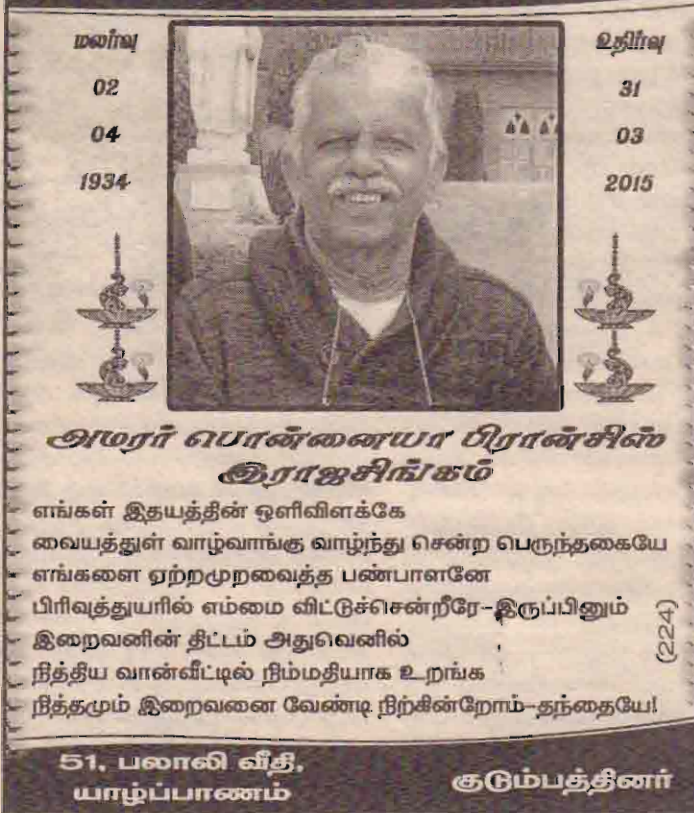 மலர்வு
02
04
1934
உதிர்வு
31
03
2015
அமரர் பொன்னையா பிரான்சிஸ்
இராஜசிங்கம்
எங்கள் இதயத்தின் ஒளிவிளக்கே
வையத்துள் வாழ்வாங்கு வாழ்ந்து சென்ற பெருந்தகையே
எங்களை ஏற்றமுறவைத்த பண்பாளனே
பிரிவுத்துயரில் எம்மை விட்டுச்சென்றீரே-இருப்பினும்
இறைவனின் திட்டம் அதுவெனில்
நித்திய வான்வீட்டில் நிம்மதியாக உறங்க
நித்தமும் இறைவனை வேண்டி நிற்கின்றோம்-தந்தையே!
(224)
51, பலாலி வீதி,
யாழ்ப்பாணம்
குடும்பத்தினர்